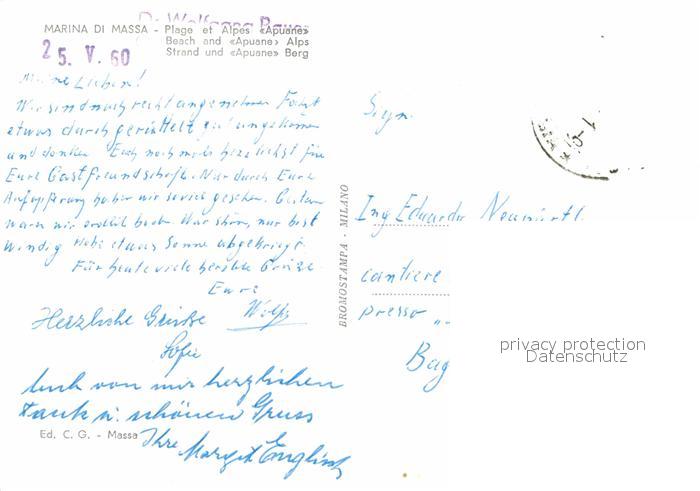 Dr. Wolfgang Bauer
MARINA DI MASSA - Plage et Alpes «Apuane»
Beach and «Apuane» Alps
Strand und «Apuane» Berg
25. V. 60
Meine Lieben!
Wir sind nach recht angenehmer Fahrt
etwas durchgerüttelt gut angekommen
und danken Euch nochmals herzlichst für
Eure Gastfreundschaft. Nur durch Eure
Aufopferung haben wir soviel gesehen. Gestern
waren wir endlich baden. War schön, nur
windig. Habe etwas Sonne abgekriegt.
Für heute viele herzliche Grüsse
Eure
Wolfg
Herzliche Grüße
Sofie
Auch von mir herzlichen
Dank u. schönen Gruss
Ihre Margit Englisch
Ed. C. G. - Massa
BROMOSTAMPA - MILANO
Sign.
Ing Eduardo Neuwirtl
cantiere
presso „
privacy protection
Datenschutz